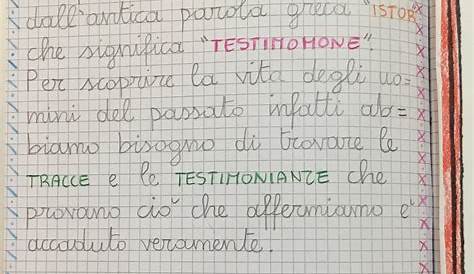 dall'antica parola greca "ISTOR
che significa "TESTIMOMONE".
Per scoprire la vita degli uo=
mini del passato infatti ab=
biamo bisogno di trovare le
TRACCE e le TESTIMONIANZE che
provano ciò che affermiamo è
accaduto veramente.